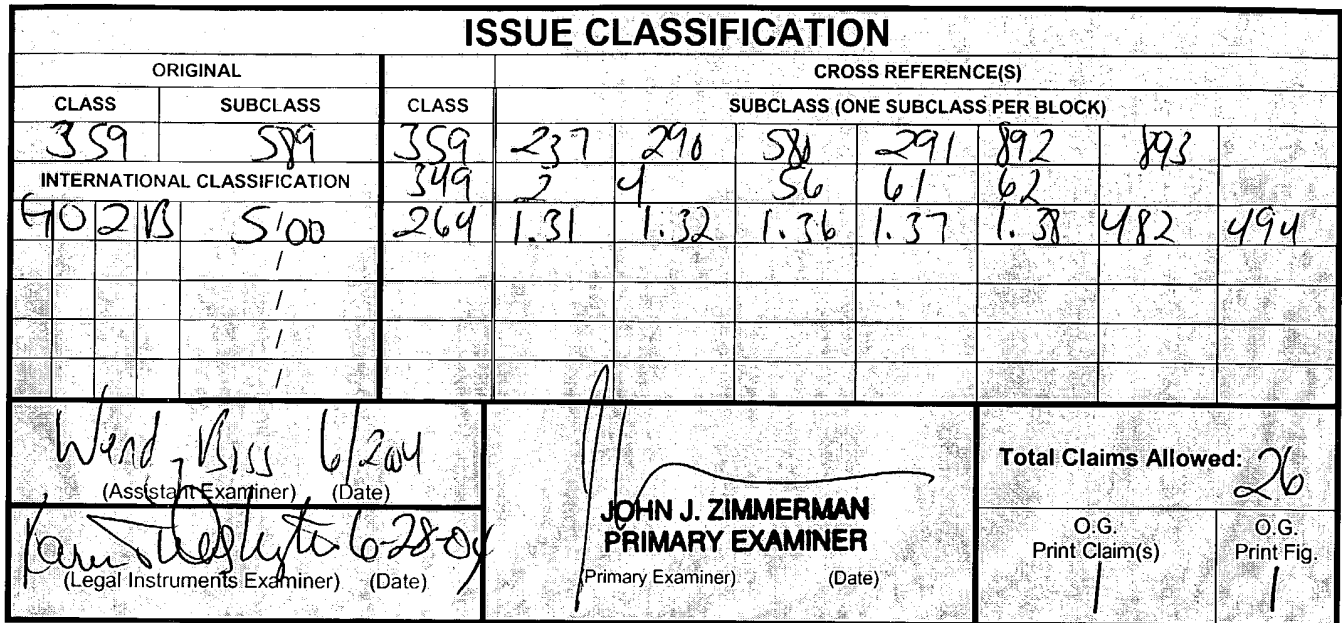 ISSUE CLASSIFICATION
ORIGINAL CROSS REFERENCE(S)
CLASS SUBCLASS CLASS SUBCLASS (ONE SUBCLASS PER BLOCK)
359 589 359 237 290 580 291 892 893
INTERNATIONAL CLASSIFICATION 349 2 4 56 61 62
G02B 5/00 264 1.31 1.32 1.36 1.37 1.38 482 494
/
/
/
/
6/2004
(Assistant Examiner) (Date)
6-28-04
(Legal Instruments Examiner) (Date)
JOHN J. ZIMMERMAN
PRIMARY EXAMINER
(Primary Examiner) (Date)
Total Claims Allowed: 26
O.G. Print Claim(s) O.G. Print Fig.
1 1